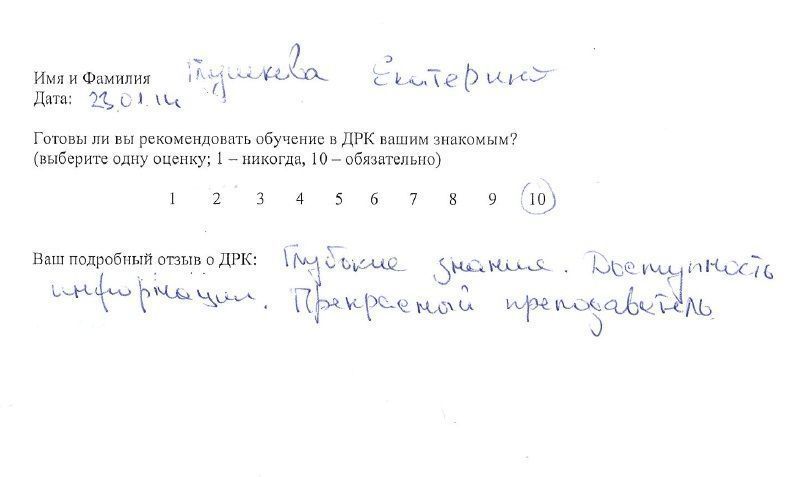 Имя и Фамилия Екатерина
Дата: 23.01.14
Готовы ли вы рекомендовать обучение в ДРК вашим знакомым?
(выберите одну оценку; 1 – никогда, 10 – обязательно)
1 2 3 4 5 6 7 8 9 10
Ваш подробный отзыв о ДРК: Глубокие знания. Доступность
информации. Прекрасный преподаватель